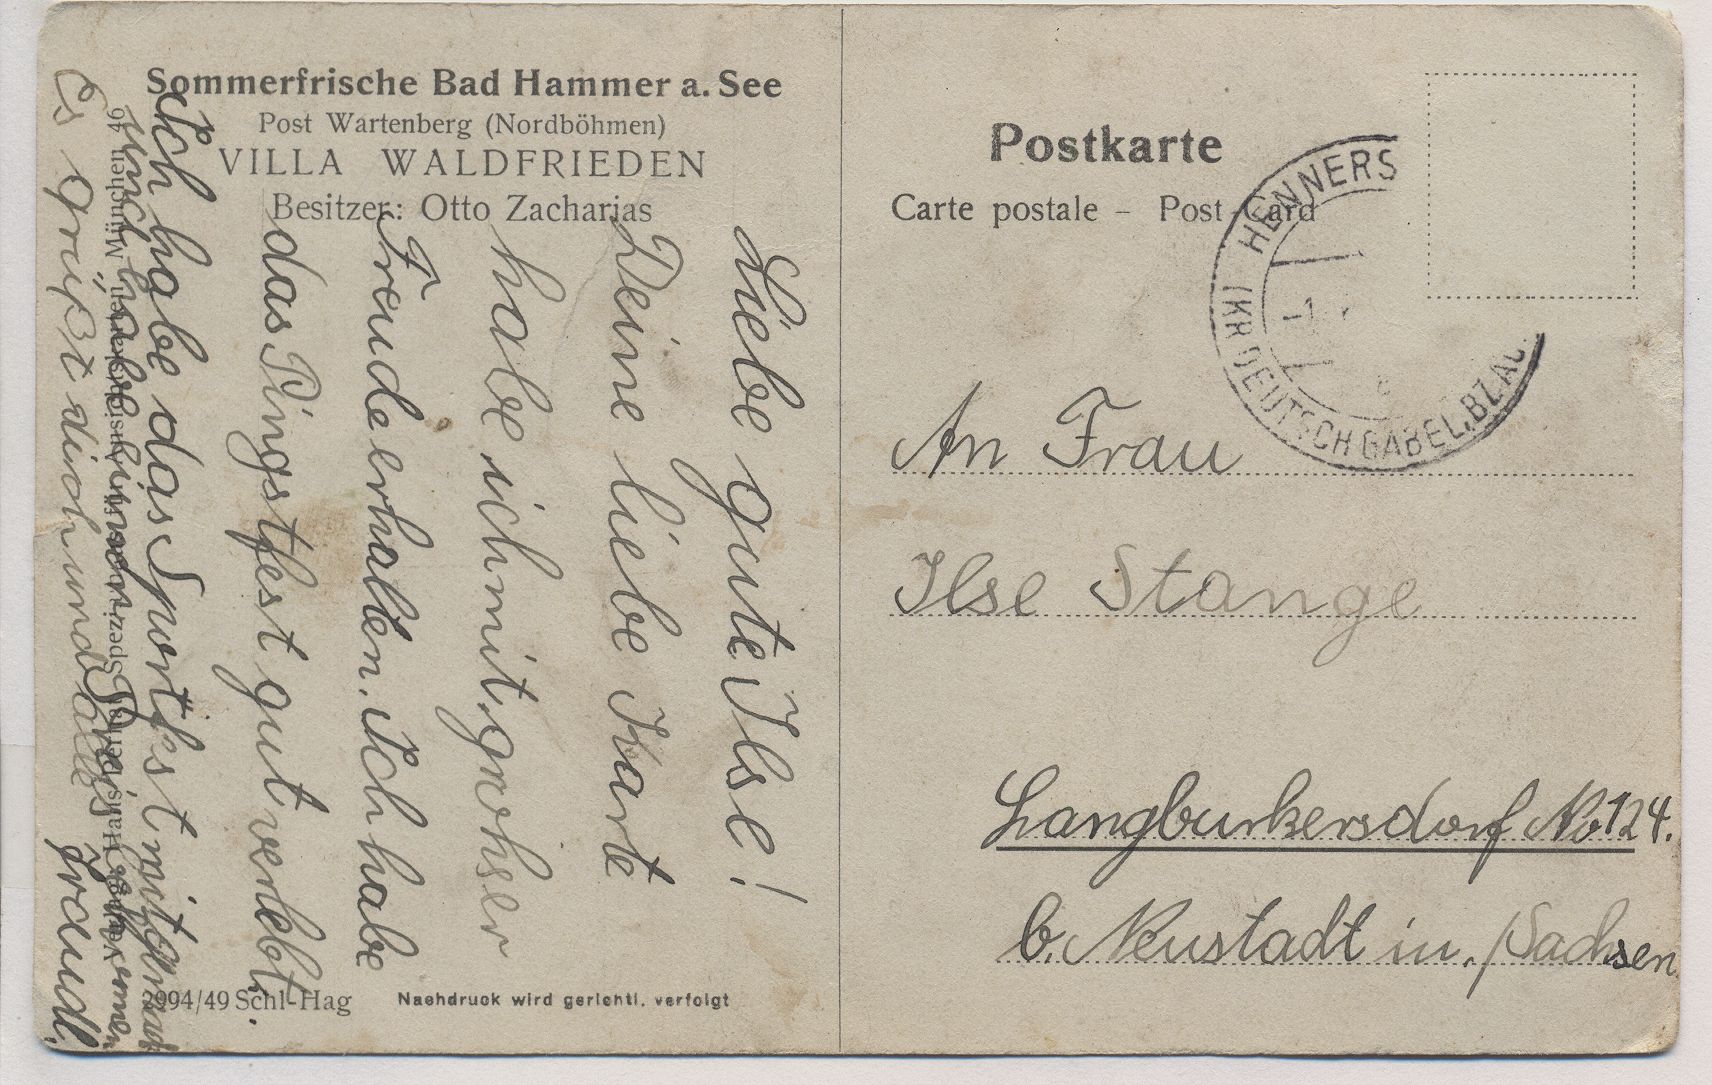 Sommerfrische Bad Hammer a. See
Post Wartenberg (Nordböhmen)
VILLA WALDFRIEDEN
Besitzer: Otto Zacharias
Liebe gute Ilse!
Deine liebe Karte
habe ich mit grohser
Freude erhalten. Ich habe
das Pingstfest gut verlebt.
Ich habe das Sportfest mitgemacht
und habe einen Preis bekommen
Es grüßt dich und alle
Traudl.
2994/49 Schl-Hag
Nachdruck wird gerichtl. verfolgt
Postkarte
Carte postale – Post-Card
HENNERS
1
(KR DEUTSCH GABEL, BZ AU
An Frau
Ilse Stange
Langburkersdorf No 124.
b. Neustadt in./Sachsen